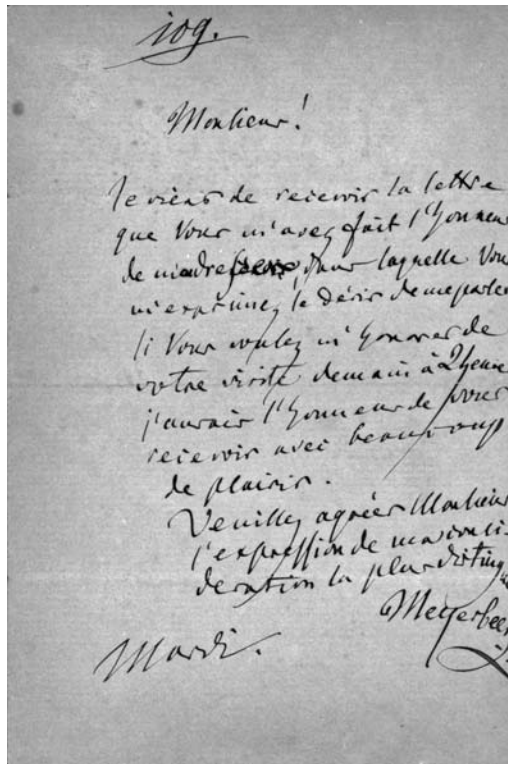 109.
Monsieur!
Je viens de recevoir la lettre
que Vous m'avez fait l'honneur
de m'adresser, dans laquelle Vous
m'exprimez le désir de me parler
Si Vous voulez m'honorer de
votre visite demain à 2 heures
j'aurais l'honneur de vous
recevoir avec beaucoup
de plaisir.
Veuillez agréer Monsieur
l'expression de ma consi-
deration la plus disting
Meyerbeer
Mardi.